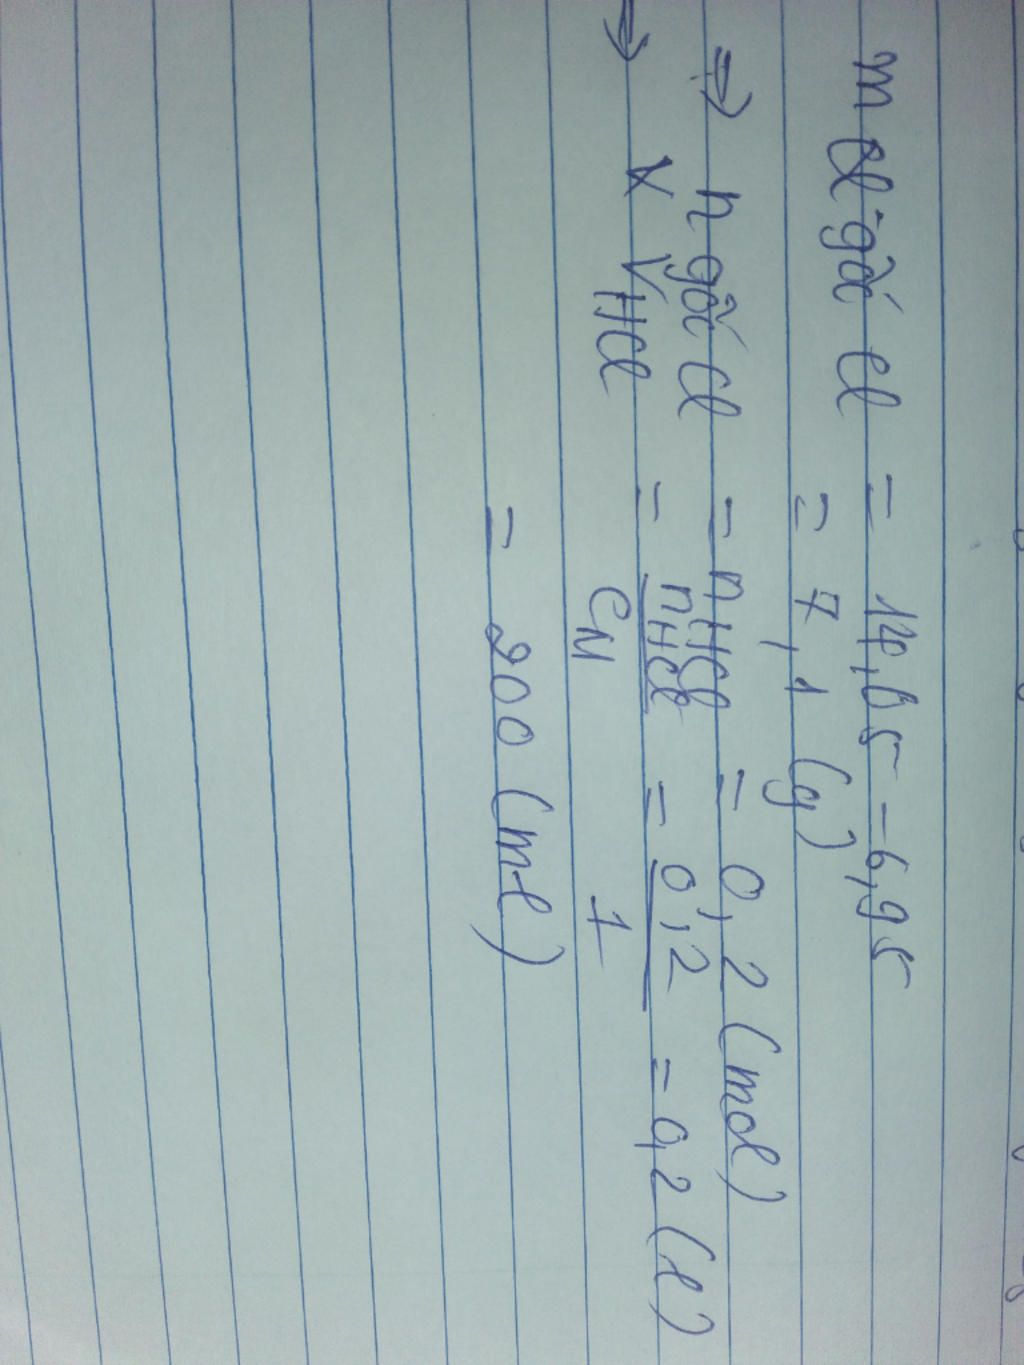 m gốc Cl = 14,05 - 6,95
= 7,1 (g)
⇒ n gốc Cl = nHCl = 0,2 (mol)
⇒ VHCl = nHCl / CM = 0,2 / 1 = 0,2 (l)
= 200 (ml)